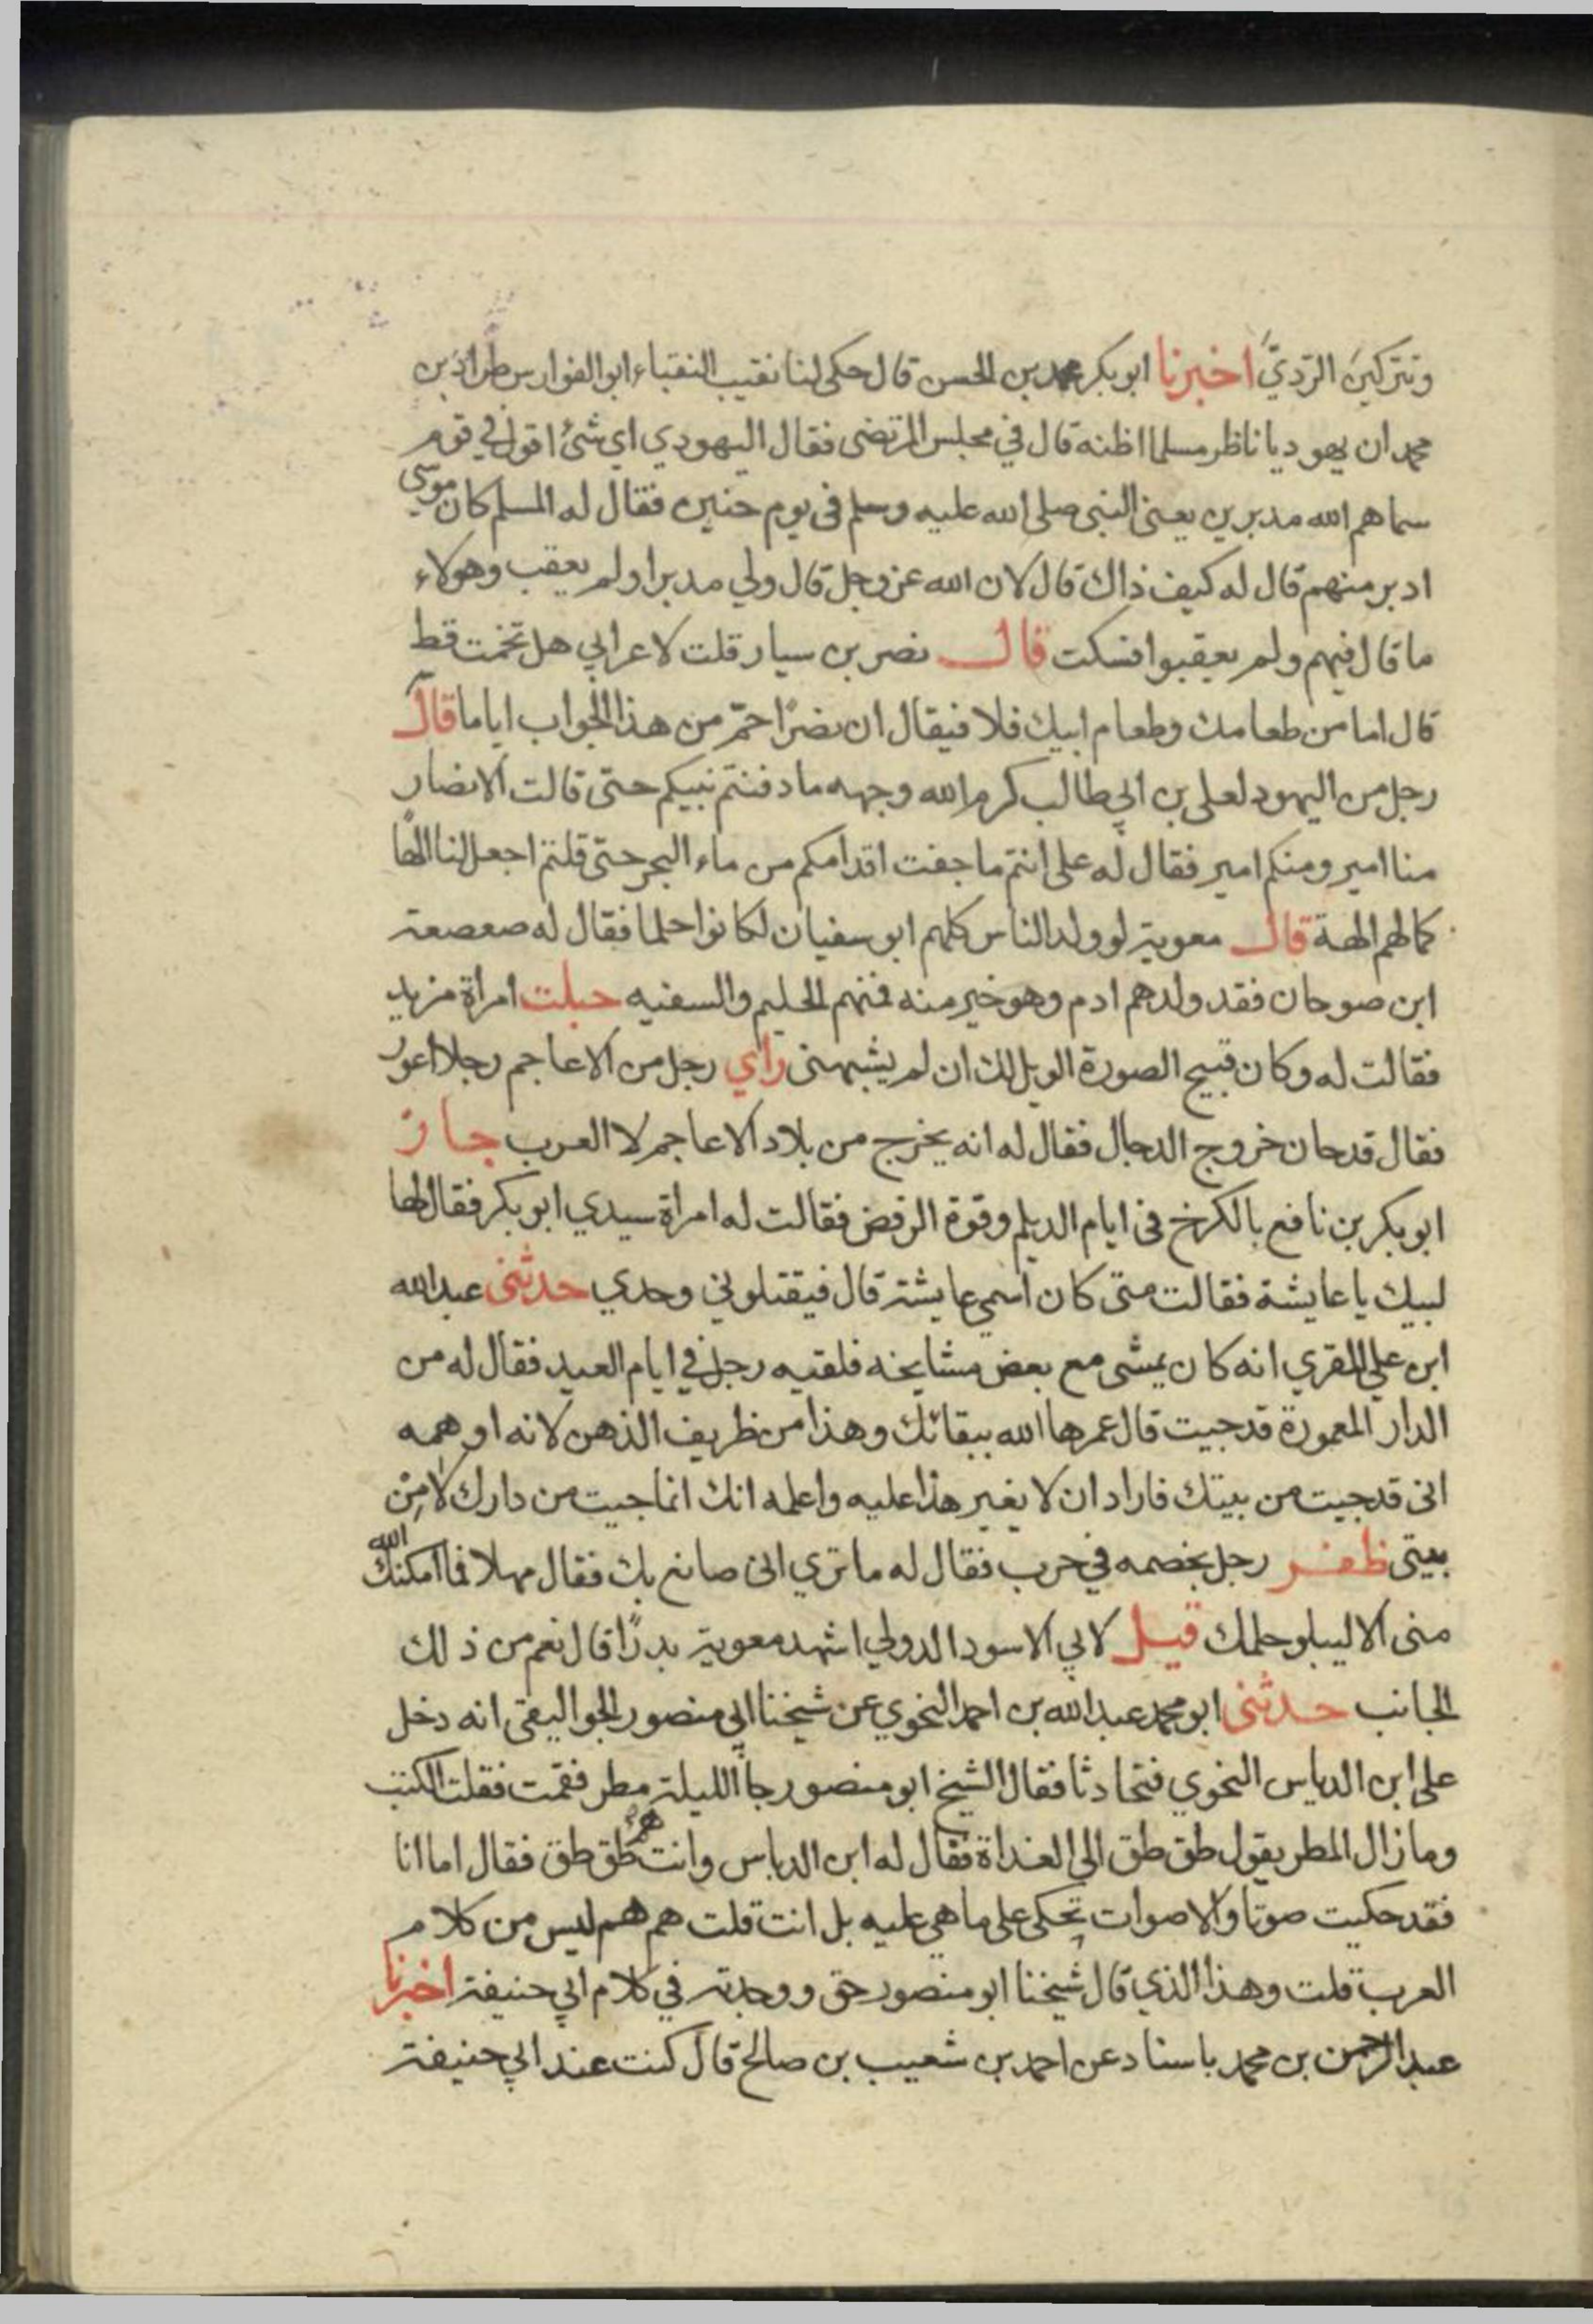 وتتركين الرّديّ اخبرنا ابو بكر محمد بن الحسن قال حكى لنا نقيب النقباء ابو الفوارس طراد بن
محمد ان يهوديا ناظر مسلما اظنه قال في مجلس المرتضى فقال اليهودي اي شئ اقول في قوم
سماهم الله مدبرين يعنى النبى صلى الله عليه وسلم فى يوم حنين فقال له المسلم كان موسى
ادبر منهم قال له كيف ذاك قال لان الله عز وجل قال ولي مدبرا ولم يعقب وهولاء
ما قال فيهم ولم يعقبوا فسكت قال نصر بن سيار قلت لاعرابي هل تخمت قط
قال اما من طعامك وطعام ابيك فلا فيقال ان نصرًا حمّ من هذا الجواب اياما قال
رجل من اليهود لعلى بن ابي طالب كرم الله وجهه ما دفنتم نبيكم حتى قالت الانصار
منا امير ومنكم امير فقال له على انتم ما جفت اقدامكم من ماء البحر حتى قلتم اجعل لنا الها
كما لهم الهة قال معوية لو ولد الناس كلهم ابو سفيان لكانوا حلما فقال له صعصعة
ابن صوحان فقد ولدهم ادم وهو خير منه فمنهم الحليم والسفيه حبلت امراة مزيد
فقالت له وكان قبيح الصورة الويل لك ان لم يشبهنى راي رجل من الاعاجم رجلا اعور
فقال قد حان خروج الدجال فقال له انه يخرج من بلاد الاعاجم لا العرب جاز
ابو بكر بن نافع بالكرخ فى ايام الديلم وقوة الرفض فقالت له امراة سيدي ابو بكر فقال لها
لبيك يا عايشة فقالت متى كان اسمي عايشة قال فيقتلوني وحدي حدثنى عبد الله
ابن علي المقري انه كان يمشى مع بعض مشايخه فلقيه رجل في ايام العيد فقال له من
الدار المعمورة قد جيت قال عمرها الله ببقائك وهذا من ظريف الذهن لانه اوهمه
انى قد جيت من بيتك فاراد ان لا يغير هذا عليه واعلمه انك انما جيت من دارك لا من
بيتى ظفر رجل بخصمه في حرب فقال له ما تري انى صانع بك فقال مهلا فما امكنك الله
منى الا ليبلو حلمك قيل لابي الاسود الدولي اشهد معوية بدرًا قال نعم من ذلك
الجانب حدثنى ابو محمد عبد الله بن احمد النحوي عن شيخنا ابي منصور الجواليقى انه دخل
على ابن الدباس النحوي فتحادثا فقال الشيخ ابو منصور جا الليلة مطر فقمت فقلت الكتب
وما زال المطر يقول طق طق الى الغداة فقال له ابن الدباس وانت هم طق طق فقال اما انا
فقد حكيت صوتا والاصوات تحكى على ما هي عليه بل انت قلت هم هم ليس من كلام
العرب قلت وهذا الذي قال شيخنا ابو منصور حق ووجدته في كلام ابي حنيفة اخبرنا
عبد الرحمن بن محمد باسناد عن احمد بن شعيب بن صالح قال كنت عند ابي حنيفة